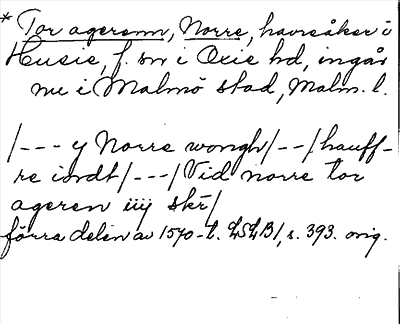 * Tor ageremn, Norre, havreåker i
Husie, f. sn i Oxie hd, ingår
nu i Malmö stad, Malm. l.
/--- y Norre wongh/--/hauff-
re iordt/---/Vid norre tor
ageren iiij skr/
förra delen av 1570-t. LSLB1, s. 393. orig.